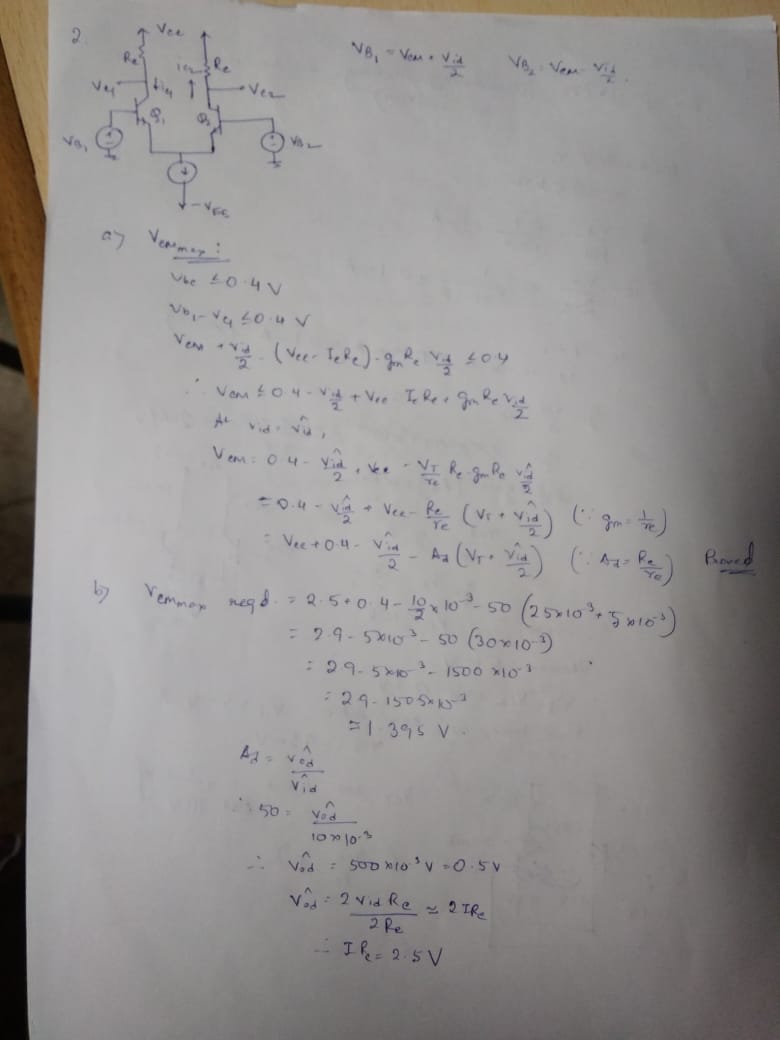 2.
Vcc
Rc
ic2
Rc
Vc1
ic1
Vc2
Q1
Q2
VB1
VB2
-VEE
VB1 = Vcm + Vid/2 VB2 = Vcm - Vid/2
a) Vcm max :
Vbc ≤ 0.4 V
VB1 - Vc1 ≤ 0.4 V
Vcm + Vid/2 - (Vcc - IcRc) - gmRc Vid/2 ≤ 0.4
∴ Vcm ≤ 0.4 - Vid/2 + Vcc - IcRc + gmRc Vid/2
At vid = v̂id,
Vcm = 0.4 - v̂id/2 + Vcc - VT/re Rc - gmRc v̂id/2
= 0.4 - v̂id/2 + Vcc - Rc/re (VT + v̂id/2) (∵ gm = 1/re)
= Vcc + 0.4 - v̂id/2 - Ad (VT + v̂id/2) (∵ Ad = Rc/re) Proved
b) Vcm max reqd. = 2.5 + 0.4 - 10/2 x 10^-3 - 50 (25x10^-3 + 5x10^-3)
= 2.9 - 5x10^-3 - 50 (30x10^-3)
= 2.9 - 5x10^-3 - 1500 x10^-3
= 2.9 - 1505x10^-3
= 1.395 V.
Ad = v̂od/v̂id
∴ 50 = v̂od/10x10^-3
∴ v̂od = 500x10^-3 V = 0.5 V
v̂od = 2 vid Rc/2 Re ≈ 2IRc
∴ IRc = 2.5 V